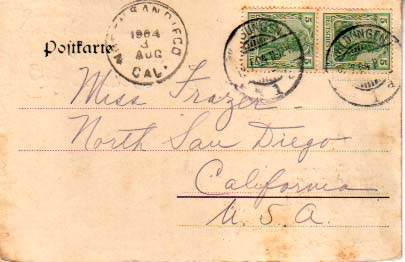 Postkarte
NORTH SAN DIEGO
1904
3
AUG
CAL.
5
5
Miss Frazer
North San Diego
California
U.S.A.